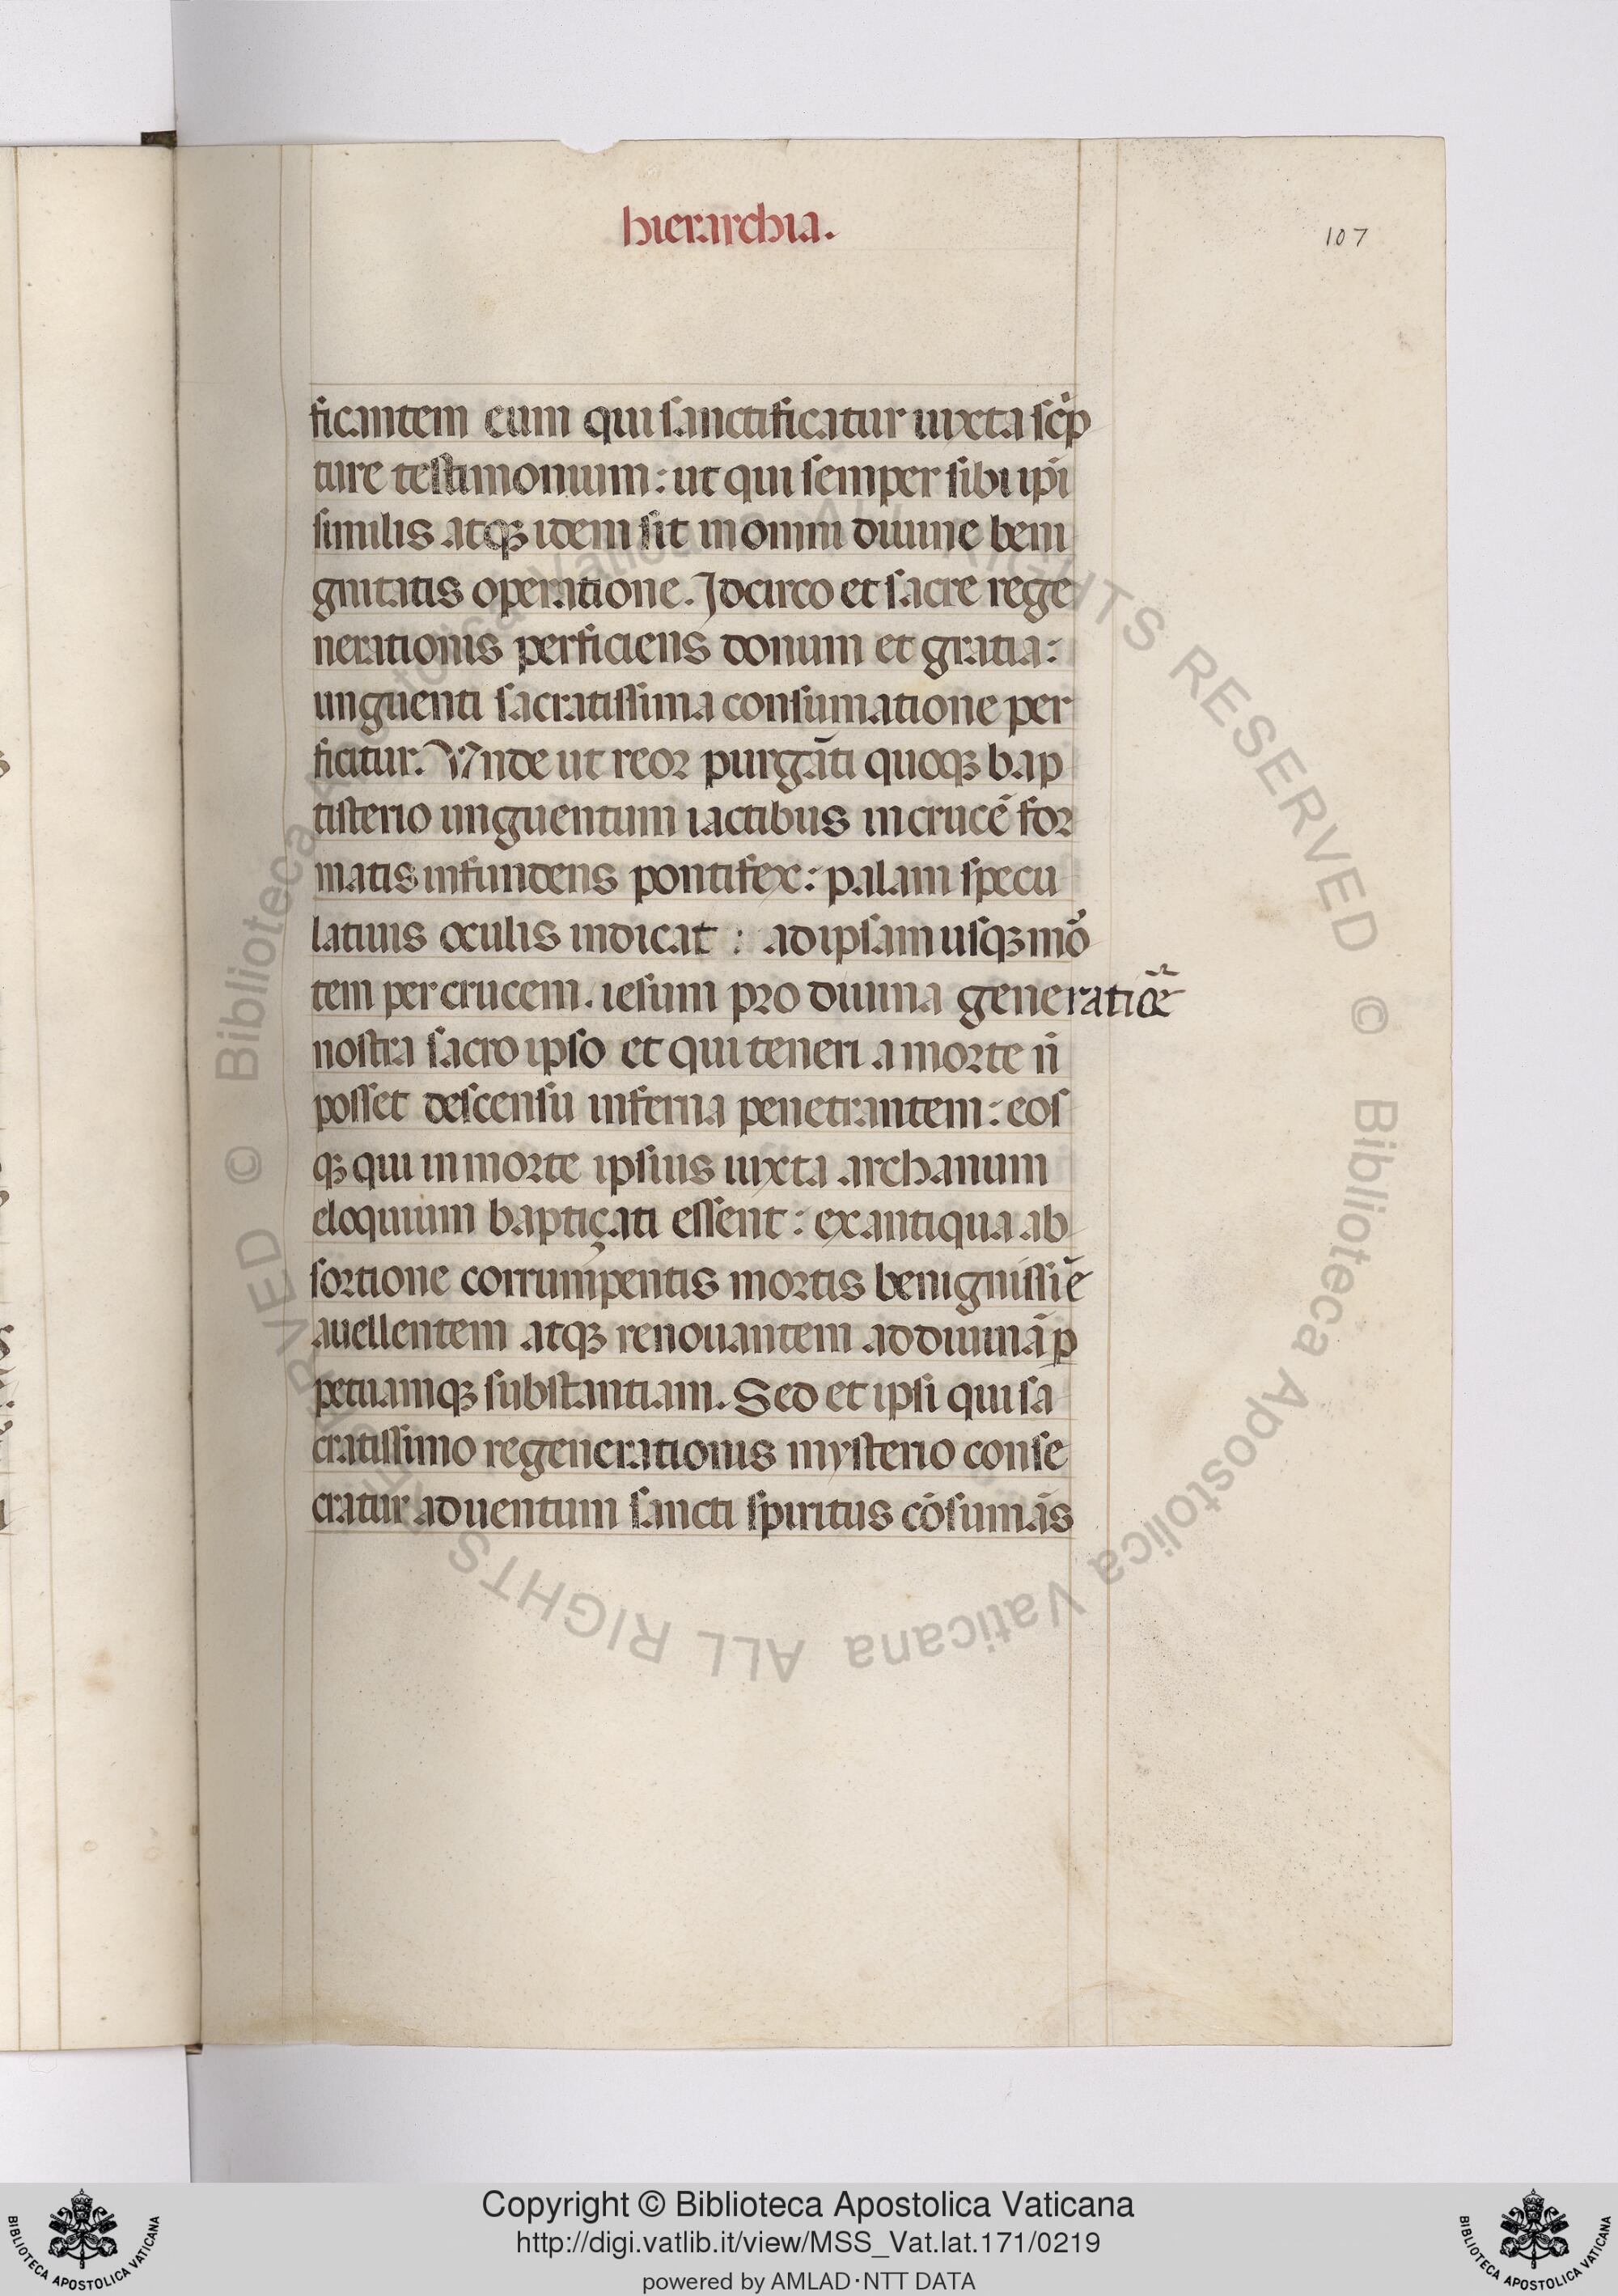 hierarchia.
107
ficantem eum qui sanctificatur iuxta sc̓p
ture testimonium: ut qui semper sibi ip̄i
similis atqꝫ idem sit in omni diuine beni
gnitatis operatione. Idcirco et sacre rege
nerationis perficiens donum et gratia:
unguenti sacratissima consumatione per
ficitur. Vnde ut reor purgāti quoqꝫ bap
tisterio unguentum iactibus in crucē for
matis infundens pontifex: palam specu
latiuis oculis indicat: ad ipsam usqꝫ mo᷒
tem per crucem. iesum pro diuina generatiōe
nostra sacro ipso et qui teneri a morte n̄
posset descensu inferna penetrantem: eos
qꝫ qui in morte ipsius iuxta archanum
eloquium baptiçati essent: ex antiqua ab
sortione corrumpentis mortis benignissīe
auellentem atqꝫ renouantem ad diuinā ꝑ
petuamqꝫ substantiam. Sed et ipsi qui sa
cratissimo regenerationis mysterio conse
cratur aduentum sancti spiritus cōsumās
© Biblioteca Apostolica Vaticana ALL RIGHTS RESERVED © Biblioteca Apostolica Vaticana ALL RIGHTS RESERVED
BIBLIOTECA APOSTOLICA VATICANA
Copyright © Biblioteca Apostolica Vaticana
http://digi.vatlib.it/view/MSS_Vat.lat.171/0219
powered by AMLAD·NTT DATA
BIBLIOTECA APOSTOLICA VATICANA